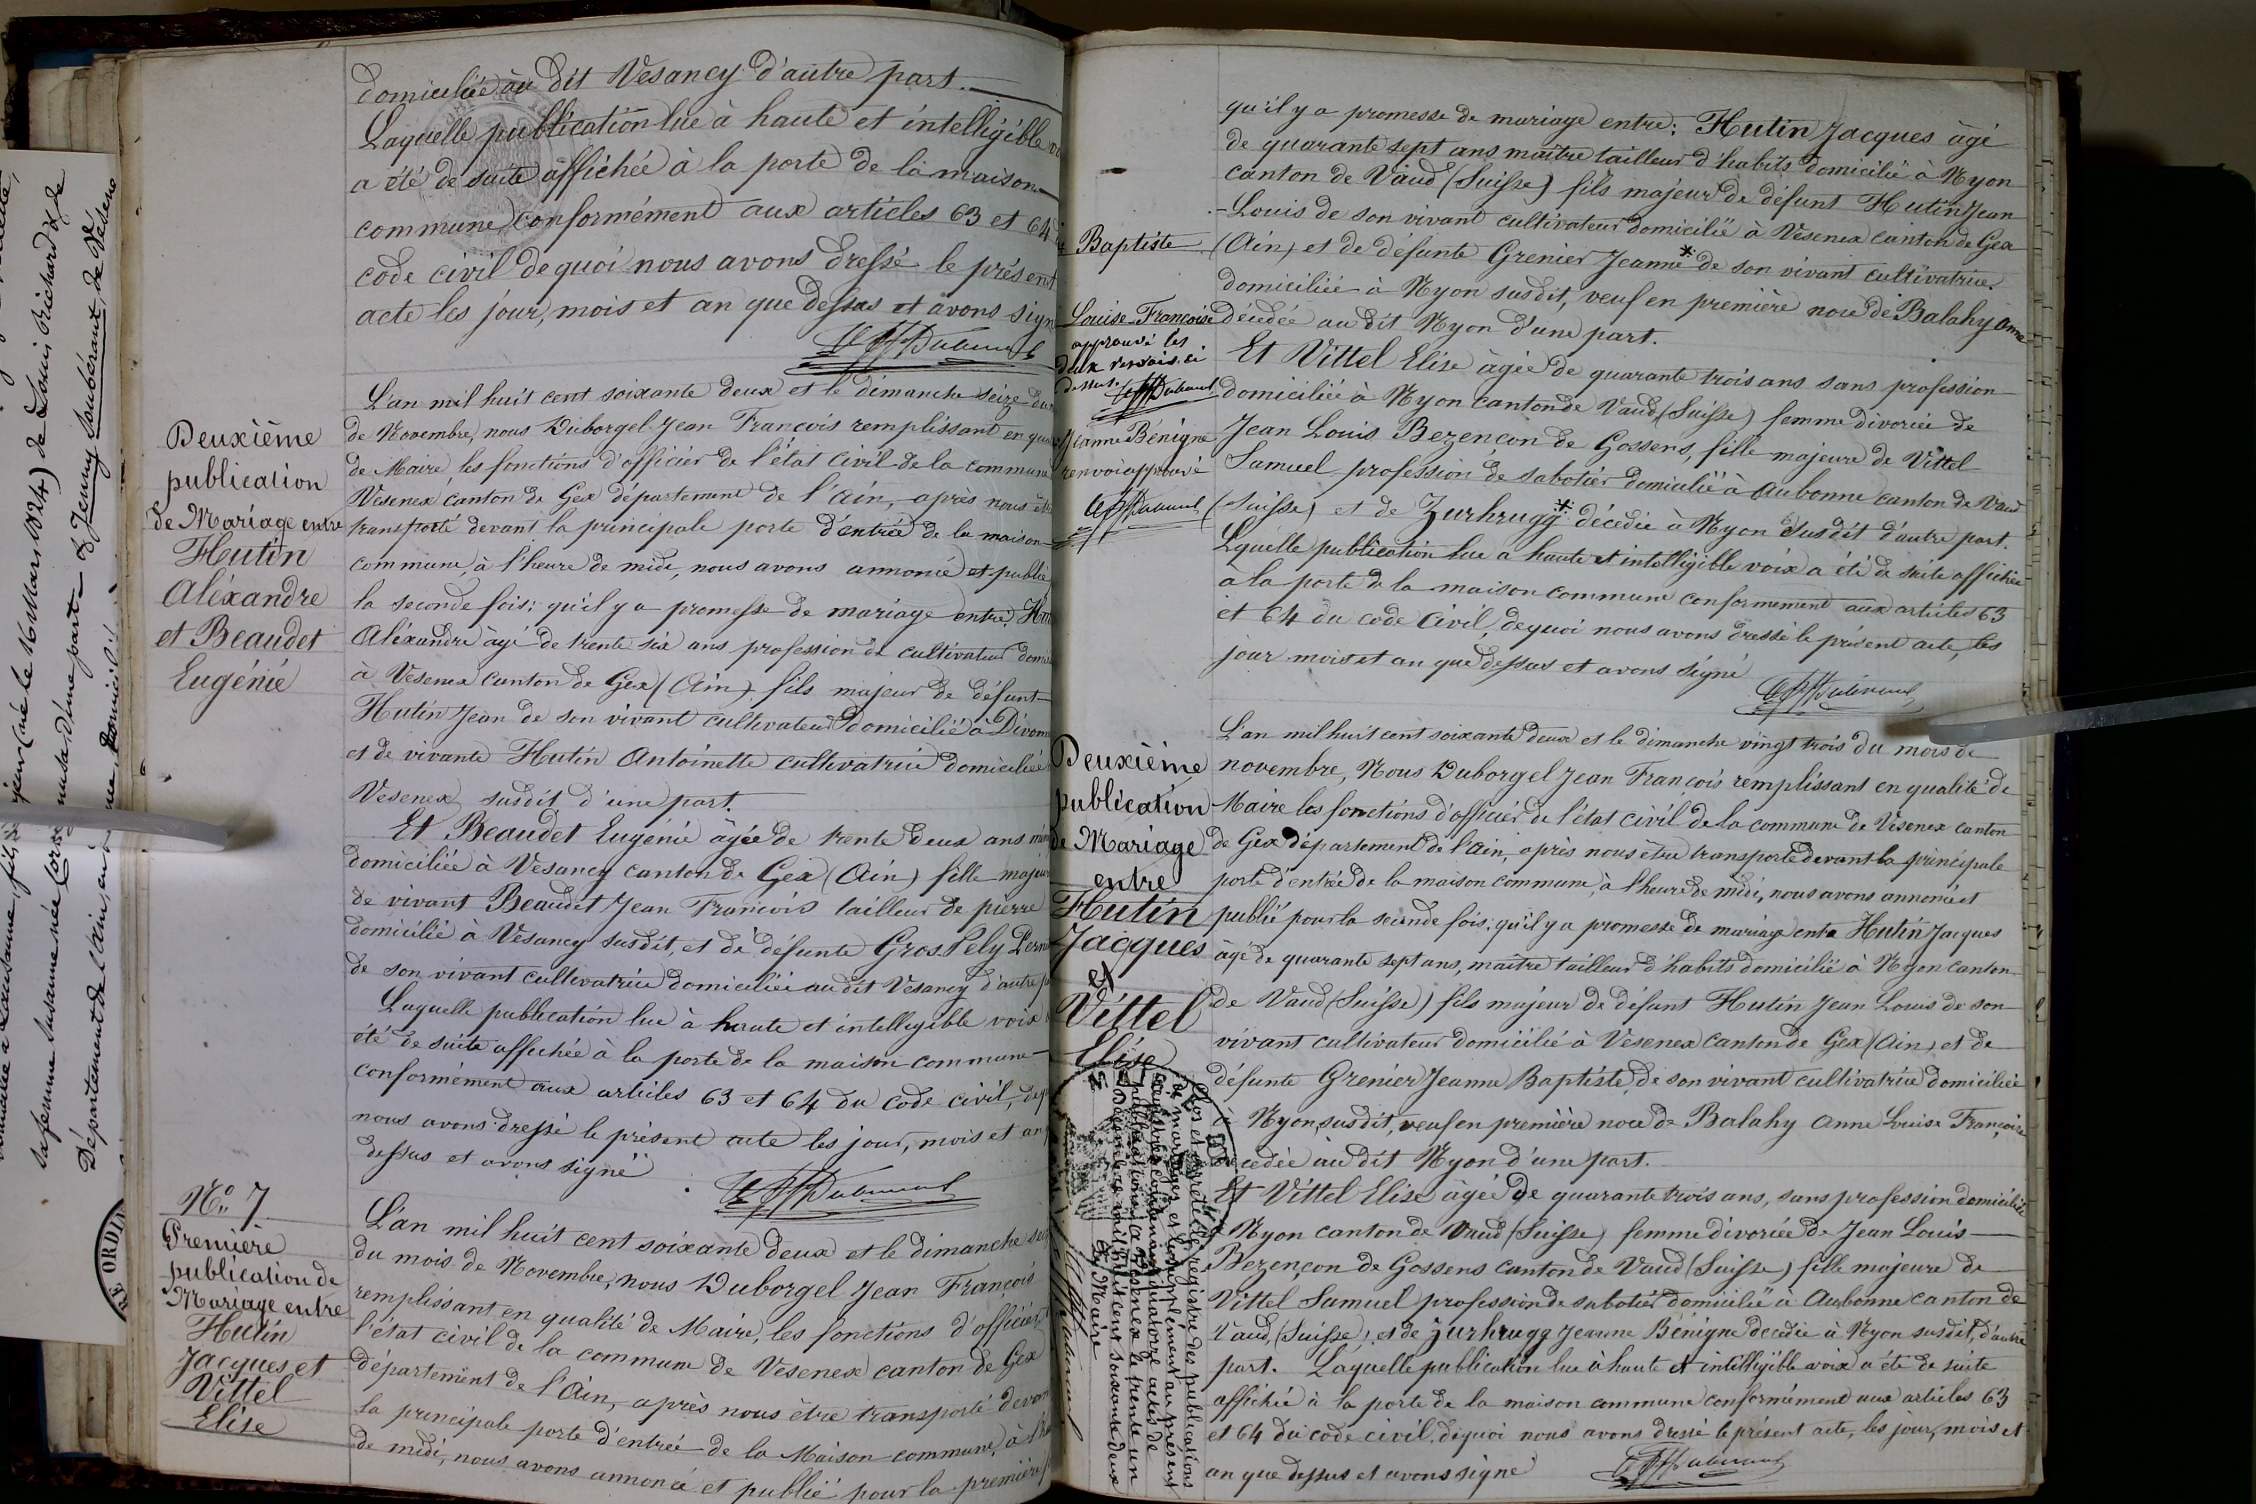 domiciliée au dit Vesancy d'autre part.
Laquelle publication lue à haute et intelligible
a été de suite affichée à la porte de la maison
commune conformément aux articles 63 et 64
code civil de quoi nous avons dressé le présent
acte les jour, mois et an que dessus et avons signé
Deuxième
publication
de Mariage entre
Hutin
Aléxandre
et Beaudet
Eugénié
L'an mil huit cent soixante deux et le dimanche seize du
de Novembre, nous Duborgel Jean François remplissant en
de Maire, les fonctions d'officier de l'état civil de la commune
Vesenex canton de Gex département de l'Ain, après nous être
transporté devant la principale porte d'entrée de la maison
commune, à l'heure de midi, nous avons annoncé et publié
la seconde fois; qu'il y a promesse de mariage entre,
Aléxandre âgé de trente six ans profession de cultivateur
à Vesenex canton de Gex (Ain), fils majeur de défunt
Hutin Jean de son vivant cultivateur domicilié à
et de vivante Hutin Antoinette cultivatrice domiciliée
Vesenex susdit d'une part.
Et Beaudet Eugénie âgée de trente deux ans
domiciliée à Vesancy canton de Gex (Ain) fille
de vivant Beaudet Jean François tailleur de pierre
domicilié à Vesancy susdit, et de défunte Gros Pely
de son vivant cultivatrice domiciliée au dit Vesancy d'autre
Laquelle publication lue à haute et intelligible voix
été de suite affichée à la porte de la maison commune
conformément aux articles 63 et 64 du code civil,
nous avons dressé le présent acte les jour, mois et an
dessus et avons signé
N° 7
Première
publication de
Mariage entre
Hutin
Jacques et
Vittel
Elise
L'an mil huit cent soixante deux et le dimanche
du mois de Novembre, nous Duborgel Jean François
remplissant en qualité de Maire, les fonctions d'officier
l'état civil de la commune de Vesenex canton de Gex
département de l'Ain, après nous être transporté
la principale porte d'entrée de la Maison commune, à
de midi, nous avons annoncé et publié pour la première
qu'il y a promesse de mariage entre: Hutin Jacques âgé
de quarante sept ans maître tailleur d'habits domicilié à Nyon
canton de Vaud (Suisse) fils majeur de défunt Hutin Jean
Louis de son vivant cultivateur domicilié à Vesenex canton de Gex
(Ain) et de défunte Grenier Jeanne * de son vivant cultivatrice
domiciliée à Nyon susdit, veuf en première noce de Balahy Anne
décédée au dit Nyon d'une part.
Baptiste
Louise Françoise
approuvé les
deux renvois ci
dessus
Et Vittel Elise âgée de quarante trois ans sans profession
domiciliée à Nyon canton de Vaud (Suisse) femme divorcée de
Jean Louis Bezençon de Gossens, fille majeure de Vittel
Samuel profession de sabotier domicilié à Aubonne canton de Vaud
(Suisse) et de Zurhrugg * décédée à Nyon susdit d'autre part.
Lquelle publication lue a haute et intelligible voix a été de suite affichée
à la porte de la maison commune conformement aux articles 63
et 64 du code civil, de quoi nous avons dressé le présent acte, les
jour mois et an que dessus et avons signé
Jeanne Bénigne
renvoi approuvé
Deuxième
publication
de Mariage
entre
Hutin
Jacques
et
Vittel
Elise
L'an mil huit cent soixante deux et le dimanche vingt trois du mois de
novembre, Nous Duborgel Jean François remplissant en qualité de
Maire les fonctions d'officier de l'état civil de la commune de Vesenex canton
de Gex département de l'Ain, après nous être transporté devant la principale
porte d'entrée de la maison commune, à l'heure de midi, nous avons annoncé et
publié pour la seconde fois; qu'il y a promesse de mariage entre Hutin Jacques
âgé de quarante sept ans, maître tailleur d'habits domicilié à Nyon canton
de Vaud (Suisse) fils majeur de défunt Hutin Jean Louis de son
vivant cultivateur domicilié à Vesenex canton de Gex (Ain) et de
défunte Grenier Jeanne Baptiste, de son vivant cultivatrice domiciliée
à Nyon susdit, veuf en première noce de Balahy Anne Louise Françoise
décédée au dit Nyon d'une part.
Et Vittel Elise âgée de quarante trois ans, sans profession domiciliée
Nyon canton de Vaud (Suisse) femme divorcée de Jean Louis
Bezençon de Gossens canton de Vaud (Suisse) fille majeure de
Vittel Samuel profession de sabotier domicilié à Aubonne canton de
Vaud, (Suisse), et de Zurhrugg Jeanne Bénigne décédée à Nyon susdit, d'autre
part. Laquelle publication lue à haute et intelligible voix a été de suite
affichée à la porte de la maison commune conformément aux articles 63
et 64 du code civil, de quoi nous avons dressé le présent acte, les jour, mois et
an que dessus et avons signé
Clos et arrêté le registre des publications
de mariages et le supplément au présent
registre contenant quatorze actes de
publications, à Vesenex le trente un
Décembre mil huit cent soixante deux
Le Maire
(né le 16 Mars 1824) de Louis Richard & de
sa femme Susanne née d'une part - & Jenny Soubéraux, de
Département de l'Ain,